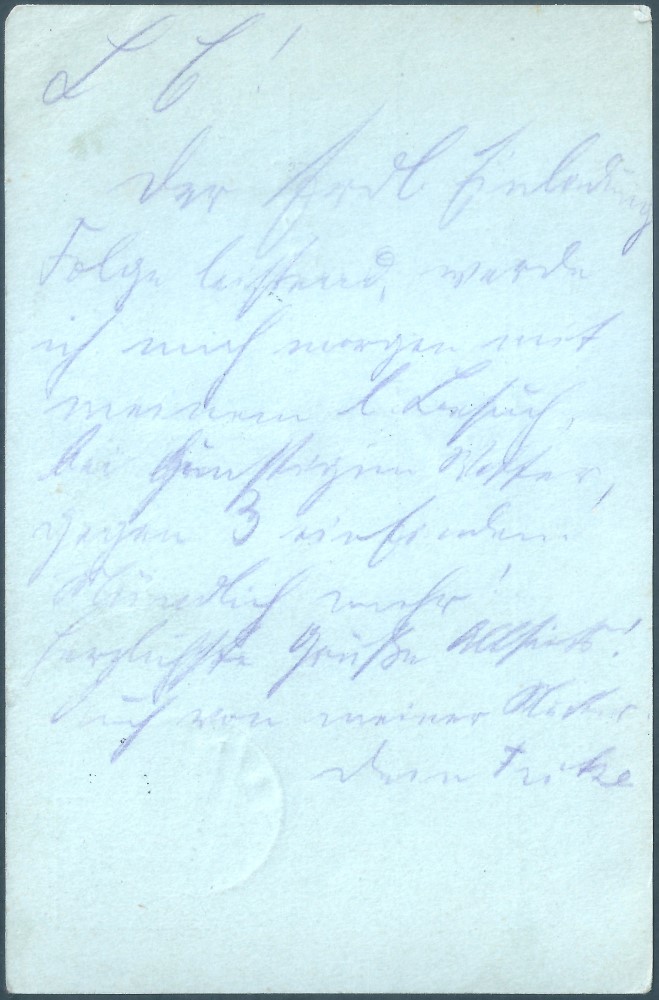 L C!
Der frdl. Einladung
Folge leistend, werde
ich mich morgen mit
meinem l. Besuch,
bei günstigem Wetter,
gegen 3 einfinden
Mündlich mehr!
Herzlichste Grüße allseits!
auch von meiner
Dein